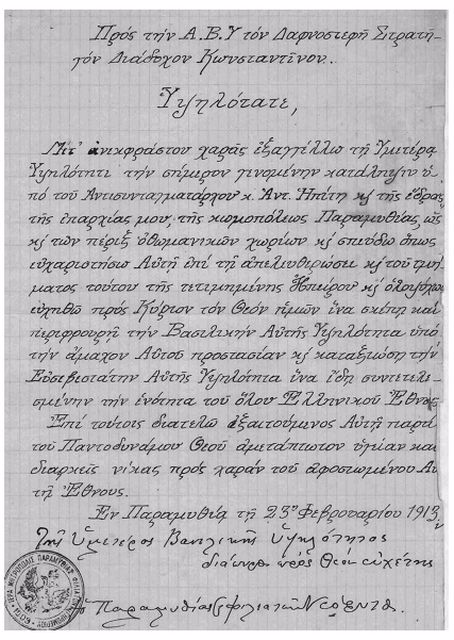 Πρός τήν Α.Β.Υ τόν Δαφνοστεφῆ Στρατη-
γόν Διάδοχον Κωνσταντῖνον.
Ὑψηλότατε,
Μετ' ἀνεκφράστου χαρᾶς ἐξαγγέλλω τῇ Ὑμετέρᾳ
Ὑψηλότητι τήν σήμερον γενομένην κατάληψιν ὑ-
πό τοῦ Ἀντισυνταγματάρχου κ. Ἀντ. Ἠπίτη κ τῆς ἕδρας
τῆς ἐπαρχίας μου, τῆς κωμοπόλεως Παραμυθίας ὡς
κ τῶν πέριξ ὀθωμανικῶν χωρίων κ σπεύδω ὅπως
εὐχαριστήσω Αὐτῇ ἐπί τῇ ἀπελευθερώσει κ τοῦ τμή-
ματος τούτου τῆς τετιμημένης Ἠπείρου κ ὁλοψύχως
εὐχηθῶ πρός Κύριον τόν Θεόν ἡμῶν ἵνα σκέπῃ καί
περιφρουρῇ τήν Βασιλικήν Αὐτῆς Ὑψηλότητα ὑπό
τήν ἄμαχον Αὐτοῦ προστασίαν κ καταξιώσῃ τήν
Εὐσεβεστάτην Αὐτῆς Ὑψηλότητα ἵνα ἴδῃ συντετελε-
σμένην τήν ἑνότητα τοῦ ὅλου Ἑλληνικοῦ Ἔθνους
Ἐπί τούτοις διατελῶ ἐξαιτούμενος Αὐτῇ παρά
τοῦ Παντοδυνάμου Θεοῦ ἀμετάπτωτον ὑγείαν καί
διαρκεῖς νίκας πρός χαράν τοῦ ἀφοσιωμένου Αὐ-
τῇ Ἔθνους.
Ἐν Παραμυθίᾳ τῇ 23ῃ Φεβρουαρίου 1913
Τῆς Ὑμετέρας Βασιλικῆς Ὑψηλότητος
διάπυρος πρός Θεόν εὐχέτης
Παραμυθίας